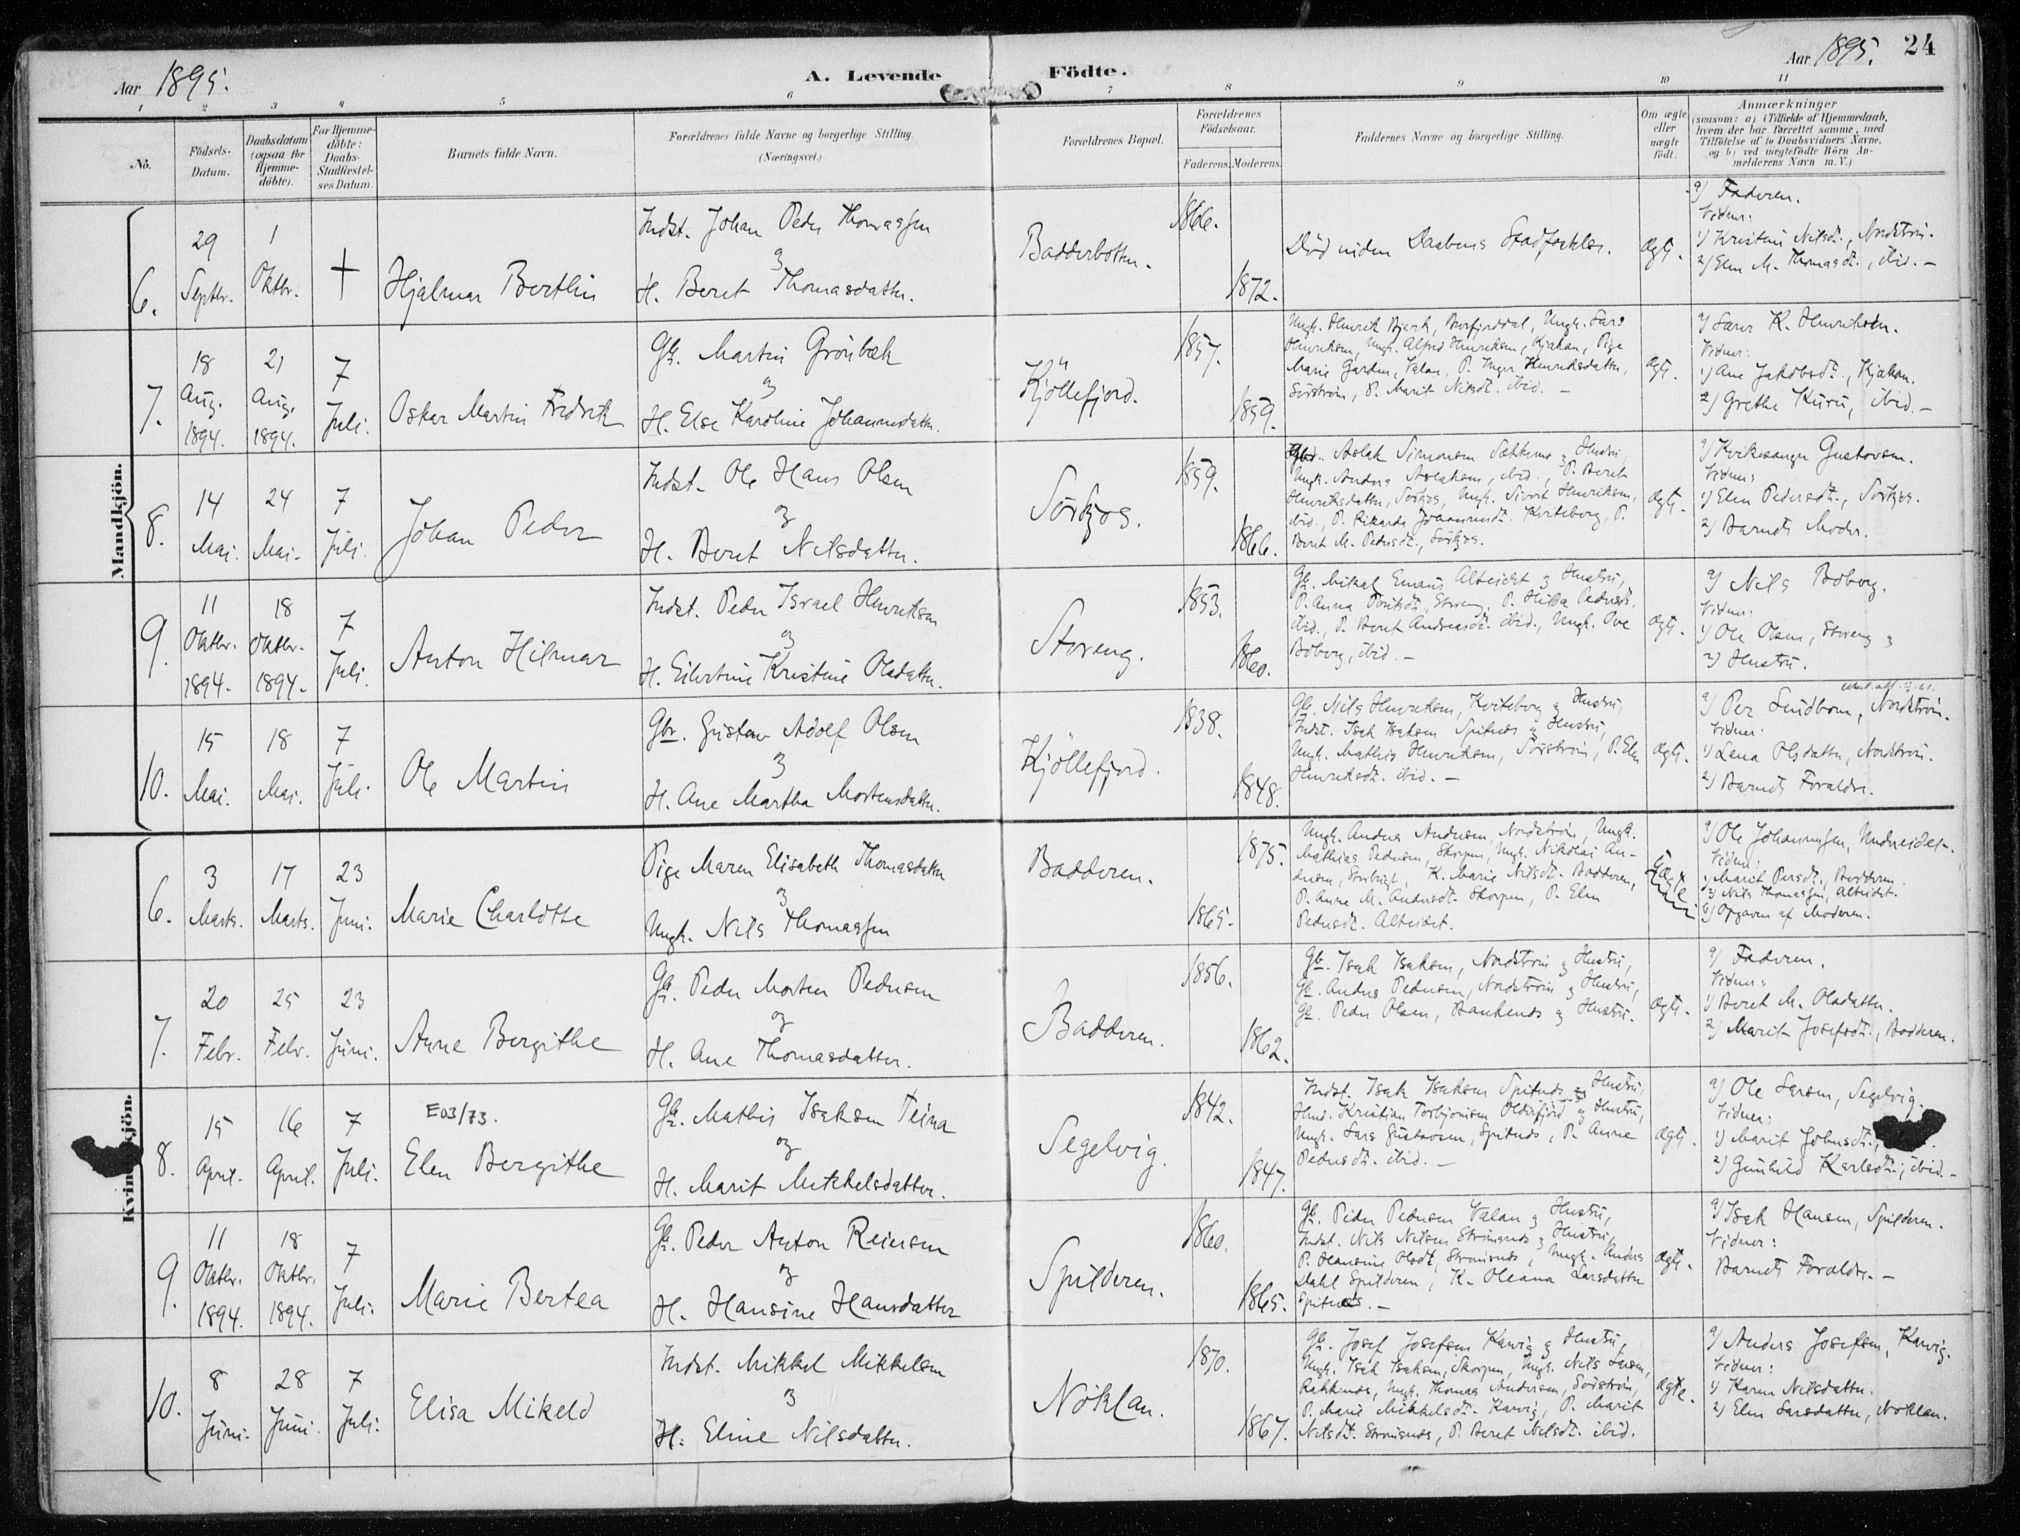 Aar 1895.
A. Levende Födte.
Aar 1895.
24
1 2 3 4 5 6 7 8 9 10 11
No.
Födsels-Datum.
Daabsdatum (ogsaa for Hjemme-döbte).
For Hjemme-döbte: Daabs-Stadfæstel-ses Datum.
Barnets fulde Navn.
Forældrenes fulde Navne og borgerlige Stilling.
(Næringsvei.)
Forældrenes Bopæl.
Forældrenes Födselsaar.
Faderens. Moderens.
Faddernes Navne og borgerlige Stilling.
Om ægte eller uægte födt.
Anmærkninger
(saasom: a) i Tilfælde af Hjemmedaab,
hvem der har forrettet samme, med
Tilföielse af to Daabsvidners Navne,
og b) ved uægtefödte Börn An-
melderens Navn m. V.)
Mandkjön.
6.
29 Septbr.
1 Oktbr.
+
Hjalmar Bertlin
Indst. Johan Peder Thomassen
og
H. Beret Thomasdatter.
Badderbotten.
1866.
1872.
Död inden Daabens Stadfæstelse.
Ægt.
a) Faderen.
Vidner:
1) Kristine Nilsdt., Nordström.
2) Elen M. Thomasdt., ibid. –
7.
18 Aug. 1894.
21 Aug. 1894.
7 Juli.
Oskar Martin Fredrik
Gbr. Martin Grönbæk
og
H. Else Karoline Johannesdatter.
Kjöllefjord.
1857.
1859.
Ungk. Henrik Bjerk, Burfjorddal, Ungk. Lars
Henriksen, Ungk. Alfred Henriksen, Kjækan, Pige
Marie Garden, Valan, P. Inger Henriksdatter,
Sörström, P. Marit Nilsdt. ibid. –
Ægt.
a) Lars K. Henriksen.
Vidner:
1) Ane Jakobsdt., Kjækan.
2) Grethe Kuru, ibid. –
8.
14 Mai.
24 Mai.
7 Juli.
Johan Peder
Indst. Ole Hans Olsen
og
H. Beret Nilsdatter.
Sörkjos.
1859.
1866.
Aslak Simonsen
Hustru,
Ungk. Anders Aslaksen, ibid., P. Beret
Henriksdatter, Sörkjos, Ungk. Sivert Henriksen,
ibid., P. Rikarda Johannesdt. Kviteberg, P.
Beret M. Pedersdt., Sörkjos.
Ægt.
a) Gustavsen.
Vidner:
1) Elen Pedersdt., Sörkjos.
2) Barnets Moder.
9.
11 Oktbr. 1894.
18 Oktbr. 1894.
7 Juli.
Anton Hilmar
Indst. Peder Israel Henriksen
og
H. Eilertine Kristine Olsdatter.
Storeng.
1853.
1860.
Gbr. Mikal Emaus Alteidet og Hustru,
ibid., P. Beret Andreasdt. ibid., Ungk. Ove
Boberg, ibid. –
Ægt.
a) Nils Boberg.
Vidner:
1) Ole Olsen, Storeng og
2) Hustru.
10.
15 Mai.
18 Mai.
7 Juli.
Ole Martin
Gbr. Gustav Adolf Olsen
og
H. Ane Martha Mortensdatter.
Kjöllefjord.
1838.
1848.
Gbr. Nils Henriksen, Kviteberg og Hustru,
Indst. Isak Isaksen Spitnes og Hustru,
Ungk. Mathis Henriksen, Sörström, P. Elen
Henriksdt. ibid. –
Ægt.
a) Per Lindbom, Nordström.
Vidner:
1) Lena Olsdatter, Nordström.
2) Barnets Forældre.
Kvindekjön.
6.
3 Marts.
17 Marts.
23 Juni.
Marie Charlotte
Pige Maren Elisabeth Thomasdatter
og
Ungk. Nils Thomassen
Badderen.
1875.
1865.
Ungk. Anders Andersen, Nordström, Ungk.
Mathias Pedersen, Skorpen, Ungk. Nikolai An-
dersen, K. Marie Nilsdt. Badderen,
P. Anne M. Andersdt. Skorpen, P. Elen
Pedersdt. Alteidet.
a) Ole Johannessen, Undereidet.
Vidner:
1) Marit Persdt., Badderen.
2) Nils Thomassen, Alteidet.
b) Opgaven af Moderen.
7.
20 Febr.
25 Febr.
23 Juni.
Anne Bergithe
Gbr. Peder Morten Pedersen
og
H. Ane Thomasdatter.
Badderen.
1856.
1862.
Gbr. Isak Isaksen, Nordström og Hustru,
Gbr. Anders Pedersen, Nordström og Hustru,
Gbr. Peder Olsen, Baukenes og Hustru.
Ægt.
a) Faderen.
Vidner:
1) Beret M. Olsdatter.
2) Marit Josefsdt., Badderen.
8.
15 April.
16 April.
7 Juli.
E03/73.
Elen Bergithe
Gbr. Mathis Isaksen Teina
og
H. Marit Mikkelsdatter.
Segelvig.
1842.
1847.
Indst. Isak Isaksen Spitnes og Hustru,
Kristian Torbjörnsen Oldefjord og Hustru,
Ungk. Lars Gustavsen, Spitnes, P. Anne
Pedersdt. ibid. –
Ægt.
a) Ole Larsen, Segelvig.
Vidner:
1) Marit Johnsdt.,
2) Gunhild Karlsdt., ibid. –
9.
11 Oktbr. 1894.
18 Oktbr. 1894.
7 Juli.
Marie Bertea
Gbr. Peder Anton Reiersen
og
H. Hansine Hansdatter
Spilderen.
1860.
1865.
Gbr. Peder Pedersen Valan og Hustru,
Indst. Nils Nilsen Strömsnes og Hustru,
P. Hansine Olsdt, Strömsnes, Ungk. Anders
Dahl Spilderen, K. Oleana Larsdatter
Spitnes. –
Ægt.
a) Isak Hansen, Spilderen.
Vidner:
Barnets Forældre. –
10.
8 Juni.
28 Juni.
7 Juli.
Elisa Mikeld
Indst. Mikkel Mikkelsen
og
H. Eline Nilsdatter.
Nöklan.
1870.
1867.
Gbr. Josef Josefsen Karvig og Hustru,
Ungk. Isak Isaksen, Skorpen, Ungk. Nils Larsen,
Rakkenes, Ungk. Thomas Andersen, Sörström,
P. Marie Mikkelsdt. Karvig, P. Marit
Nilsdt. Strömsnes, P. Beret Nilsdt. ibid.
Ægte.
a) Anders Josefsen, Karvig.
Vidner:
1) Karen Nilsdatter.
2) Elen Larsdatter, Nöklan.